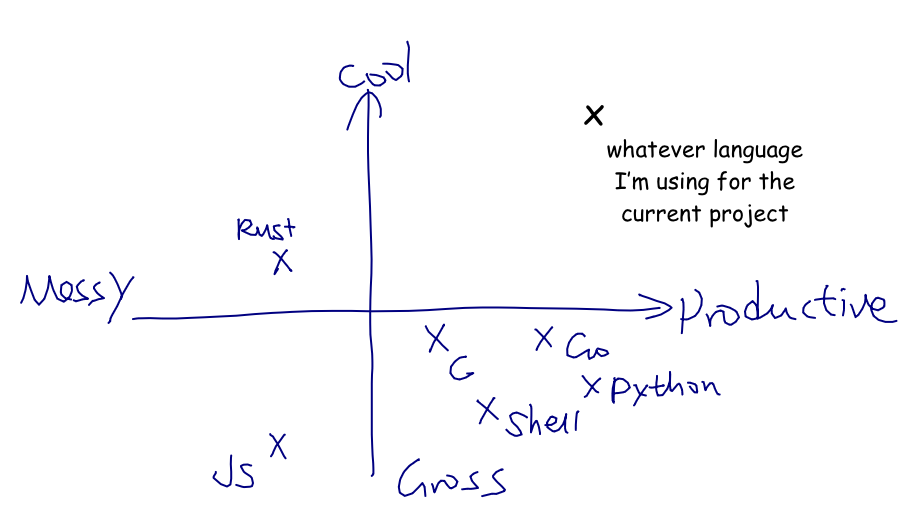 Cool
whatever language
I'm using for the
current project
Rust
Messy
Productive
C
Go
Python
Shell
JS
Gross